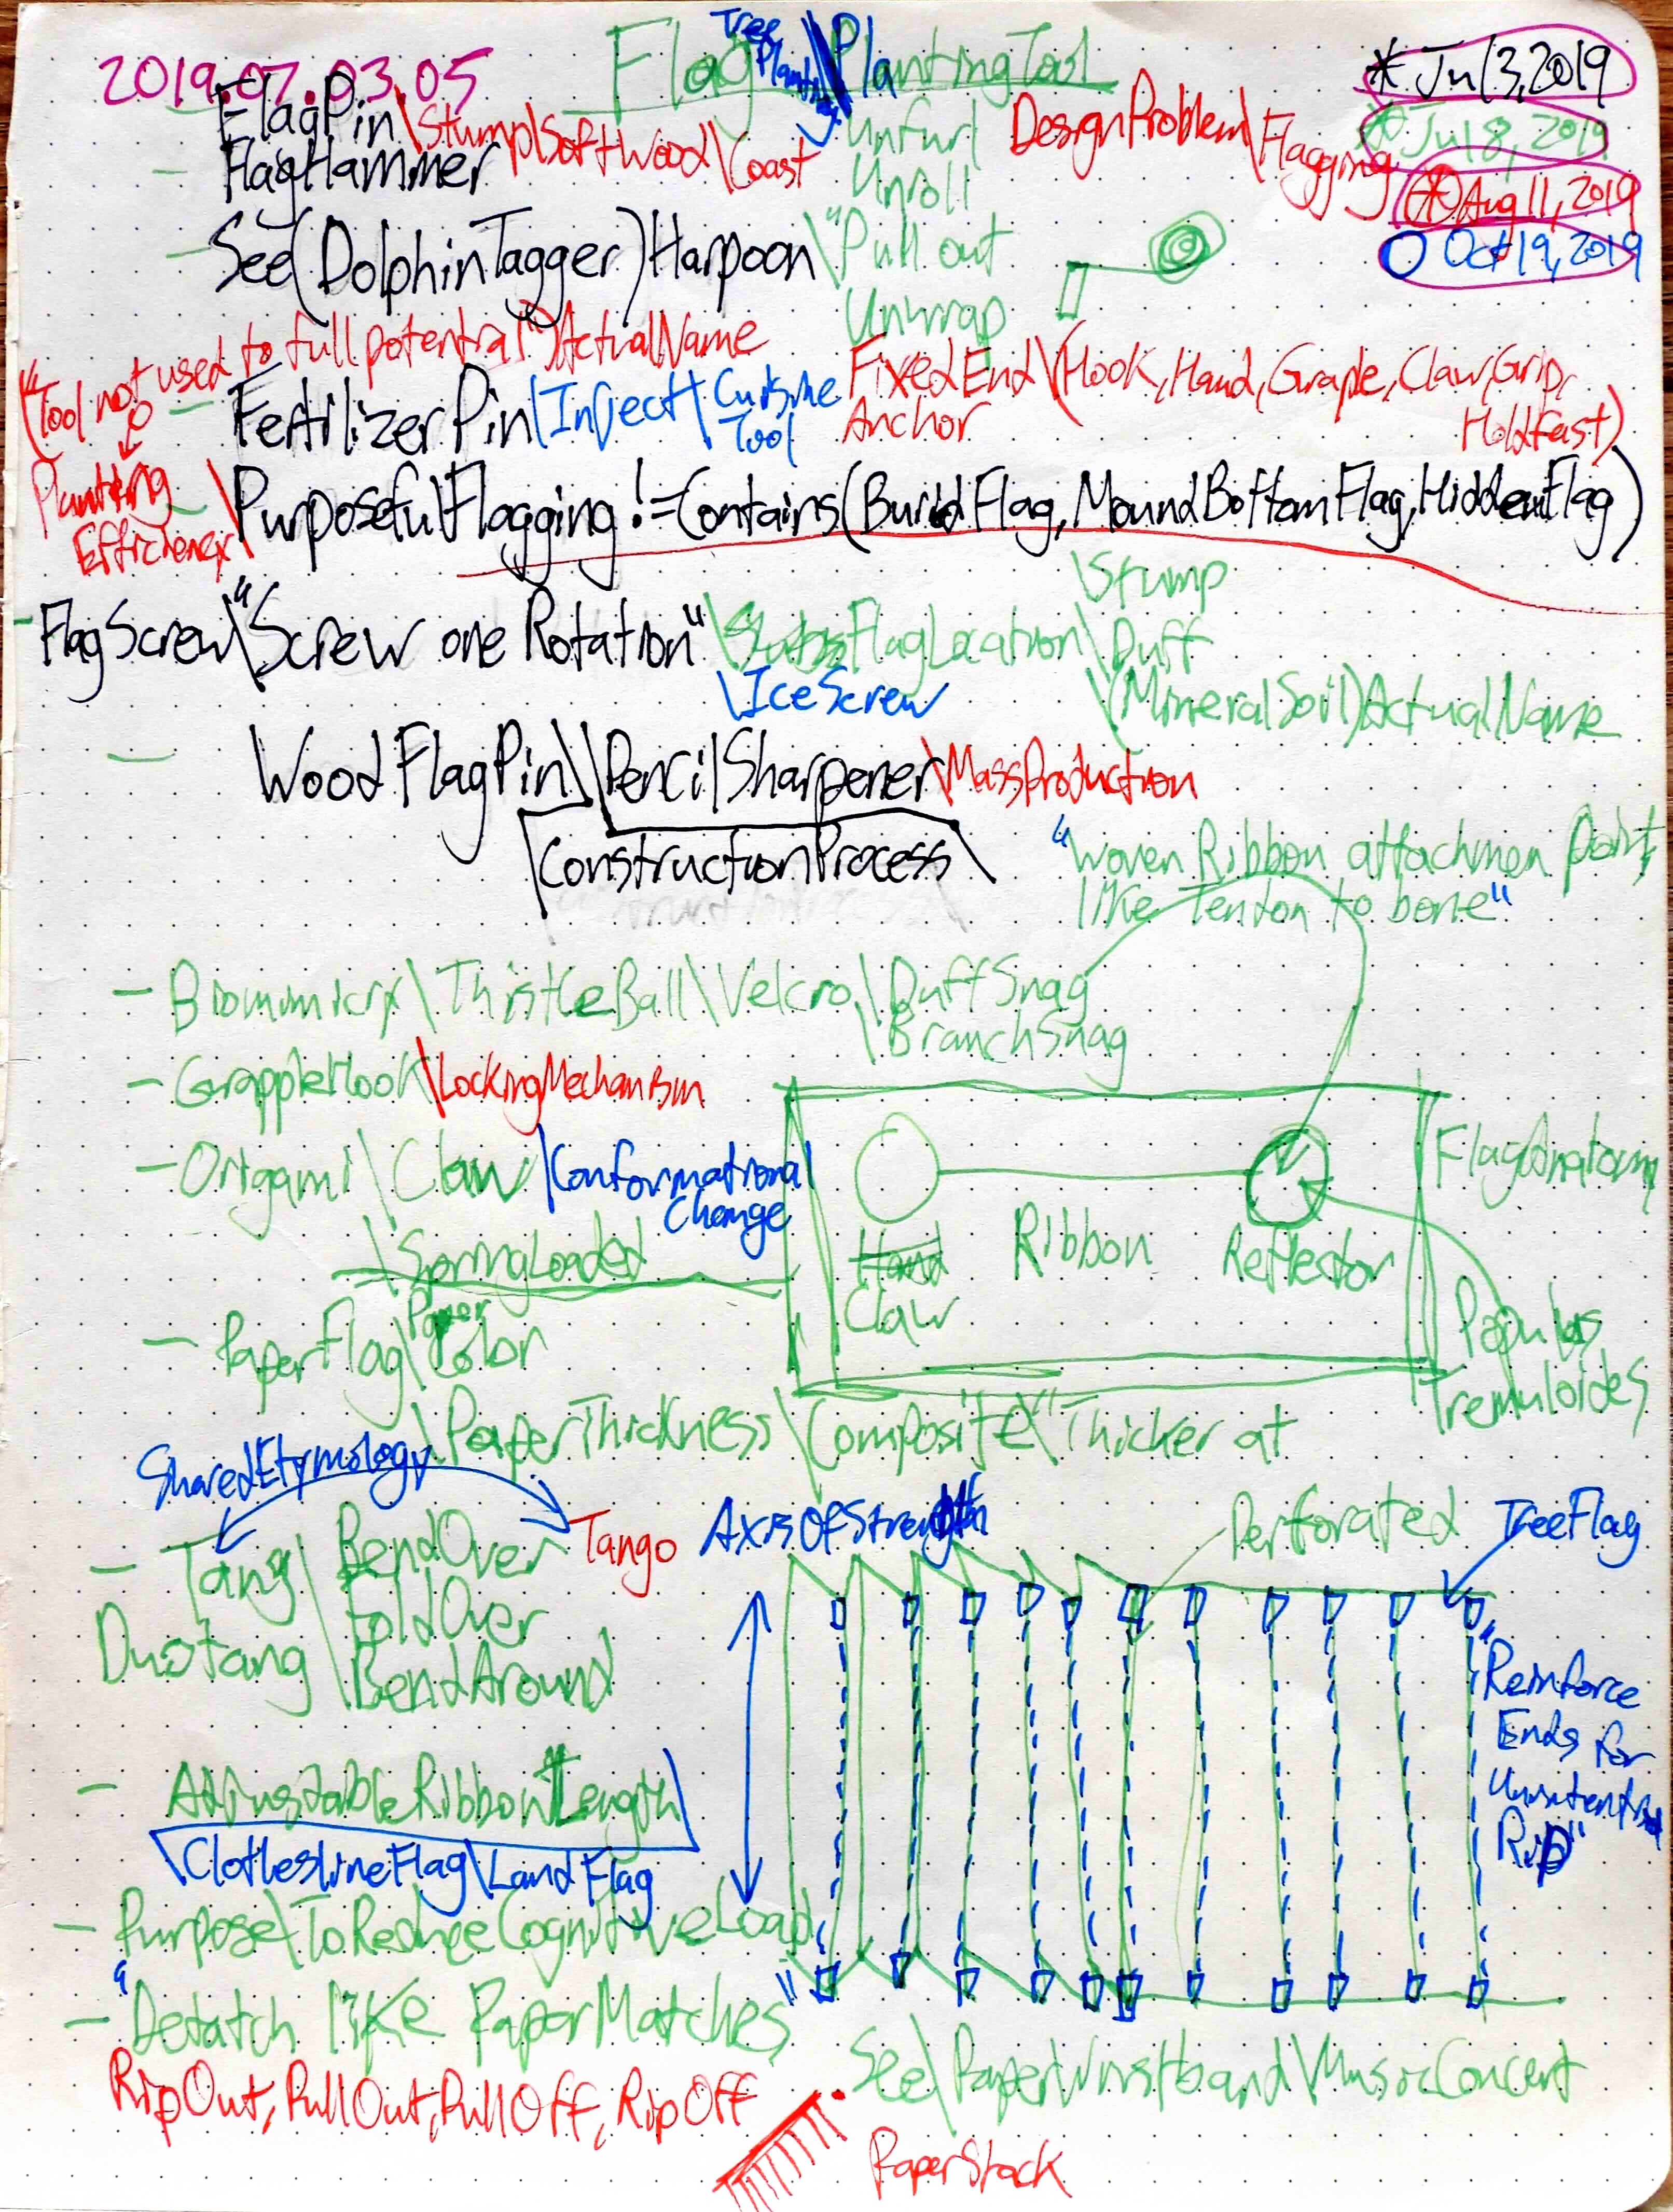 2019.07.03.05
Flag\PlantingTool
Tree
Planting
* Jul 3, 2019
* Jul 8, 2019
* Aug 11, 2019
O Oct 19, 2019
- FlagPin\Stump\SoftWood\Coast
DesignProblem\Flagging
- FlagHammer
"Unfurl
Unroll
"Pull out
Unwrap
- See(DolphinTagger)Harpoon\
("Tool not used to full potential")ActualName
- FertilizerPin\Inject\
Tool
FixedEnd\(Hook, Hand, Graple, Claw, Grip,
HoldFast)
Anchor
Planting
Efficiency\
- PurposefulFlagging != Contains(BuriedFlag, MoundBottomFlag, HiddenFlag)
- FlagScrew\"Screw one Rotation"
FlagLocation\
\Stump
\Duff
\(MineralSoil)ActualName
\IceScrew
- WoodFlagPin\\PencilSharpener\MassProduction
\ConstructionProcess\
"Woven Ribbon attachmen point
like Tendon to bone"
- Biomimicry\ThistleBall\Velcro\DuffSnag
\BranchSnag
- GrappleHook\LockingMechanism
- Origami\Claw\Conformational
Change
\SpringLoaded
Hand
Claw
Ribbon
Reflector
FlagAnatomy
Populus
Tremuloides
- PaperFlag\Color
Paper
\PaperThickness\Composite\"Thicker at
SharedEtymology
- Tang\BendOver
FoldOver
Duotang\BendAround
Tango
AxisOfStrength
Perforated
TreeFlag
"Reinforce
Ends for
Unintentional
Rip"
- AdjustableRibbonLength
\ClotheslineFlag\LandFlag
- Purpose\ToReduceCognitiveLoad
- "Detatch like PaperMatches"
RipOut, PullOut, PullOff, RipOff
See\PaperWristband\MusicConcert
PaperStack